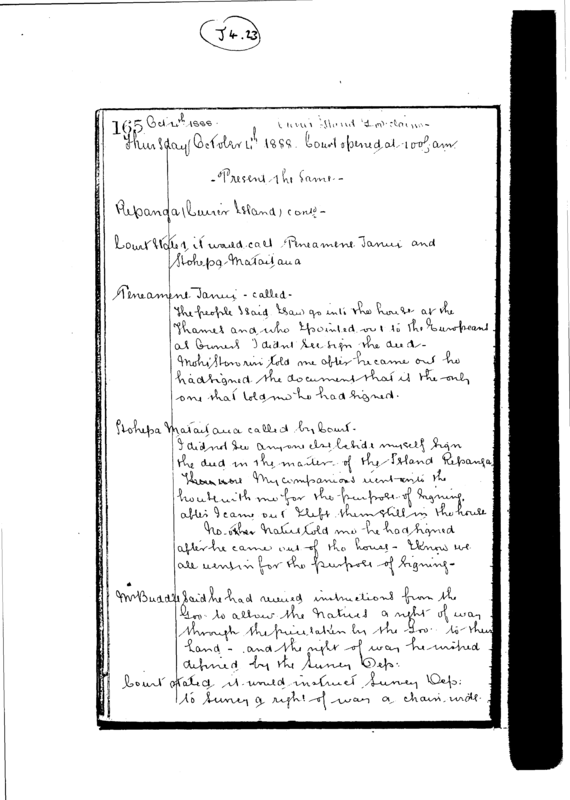 J 4.23
165 Oct 4th 1888. Cuvier Island Gov claim -
Thursday October 4th 1888. Court opened at 10 o'c, am
- Present the same -
Repanga (Cuvier Island) cont'd -
Court stated it would call Peneamene Tanui and
Hohepa Mataitaua
Peneamene Tanui - called -
The people I said I saw go into the house at the
Thames and who I pointed out to the Europeans
as Owners I didnt see sign the deed -
told me after he came out he
had signed the document that is the only
one that told me he had signed.
Hohepa Mataitaua called by Court -
I did not see anyone else beside myself sign
the deed in the matter of the Island Repanga
My companions went into the
house with me for the purpose of signing.
after I came out I left them still in the house
No other Natives told me he had signed
after he came out of the house - I know we
all went in for the purpose of signing -
Mr Buddle said he had received instructions from the
Gov. to allow the Natives a right of way
through the piece taken by the Gov. to their
land - and the right of way he wished
defined by the Survey Dep:
Court stated it would instruct Survey Dep:
to survey a right of way a chain wide.